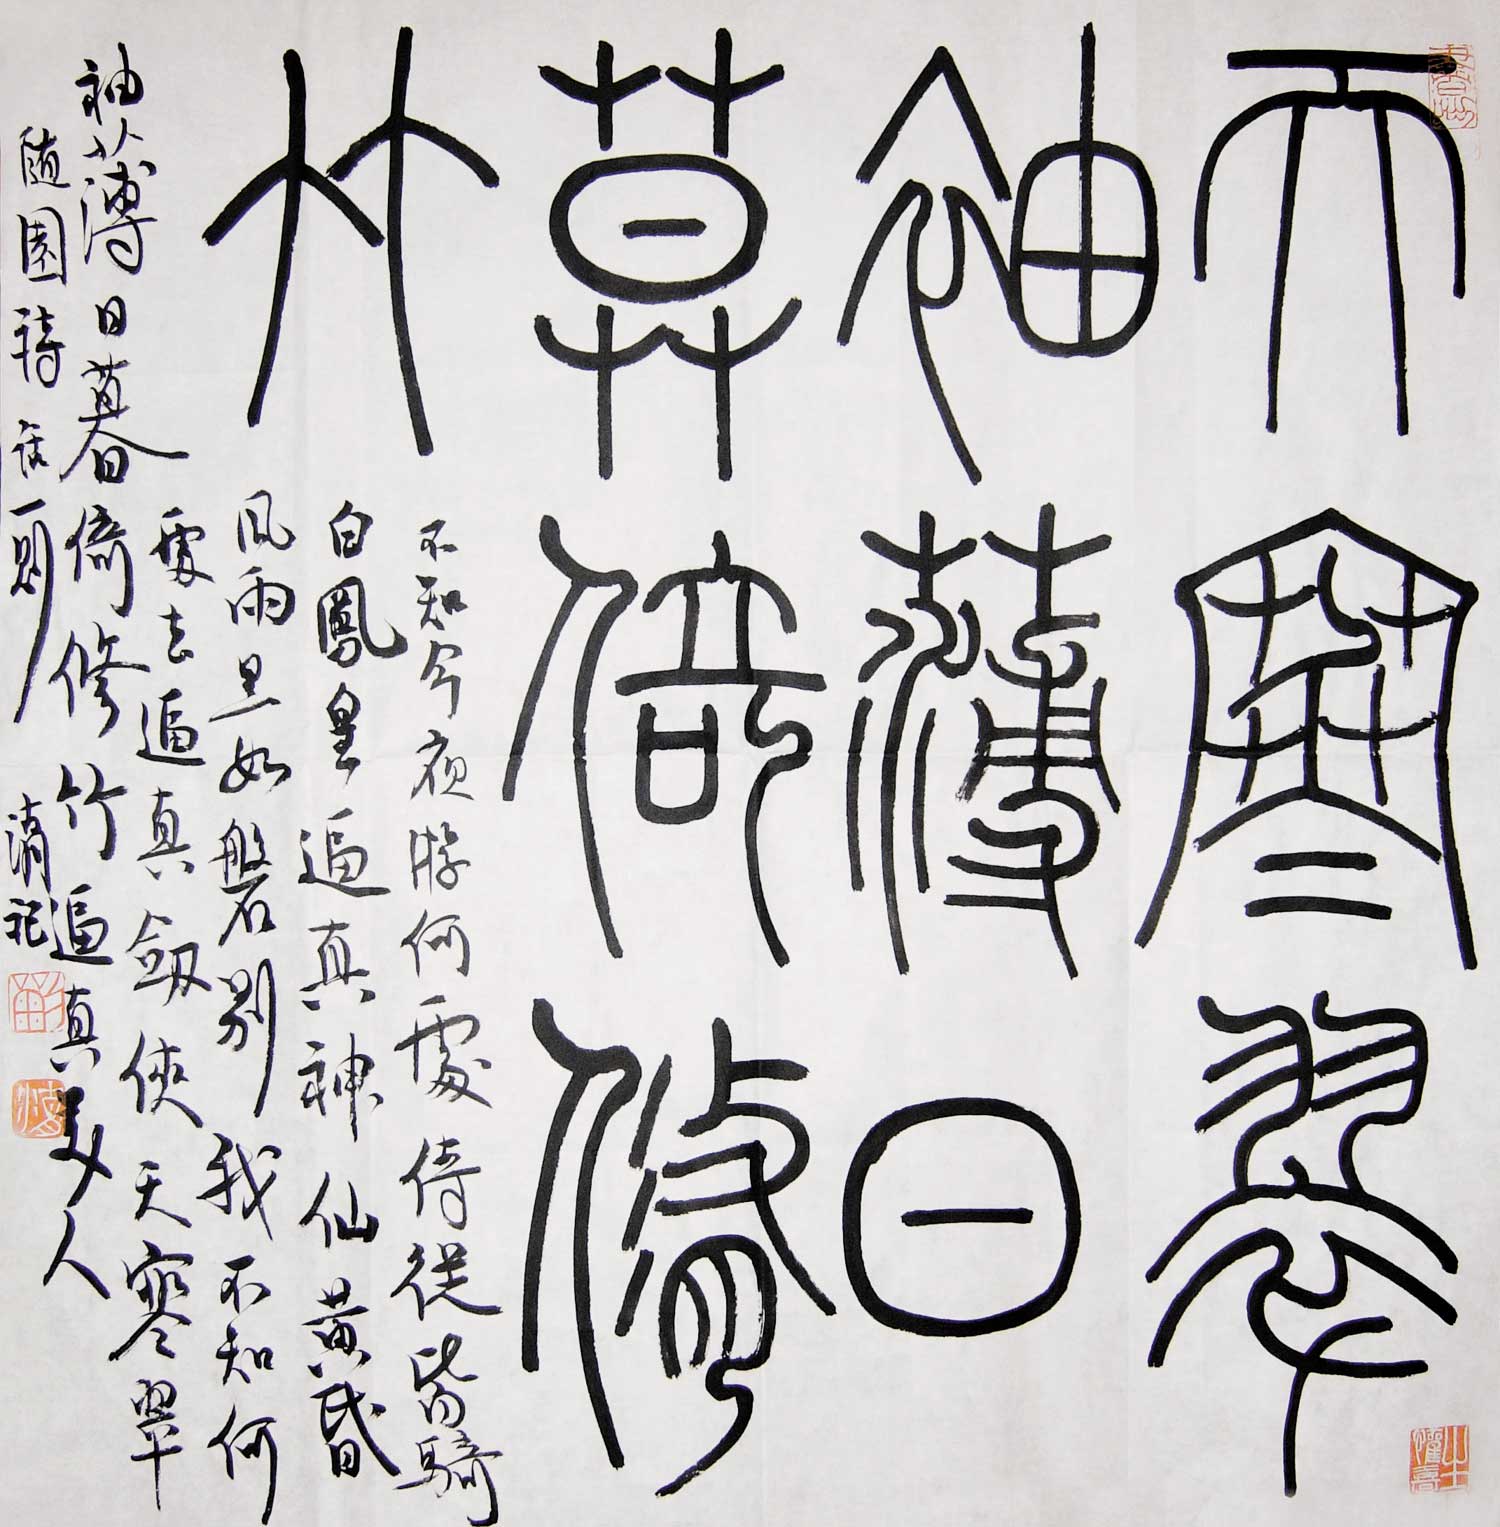 天寒翠
袖薄日
莫倚修
竹
不知今夜游何處侍從皆騎
白鳳皇逼真神仙黃昏
風雨黑如磐別我不知何
處去逼真劍俠天寒翠
袖薄日暮倚修竹逼真美人
隨園詩話一則 記